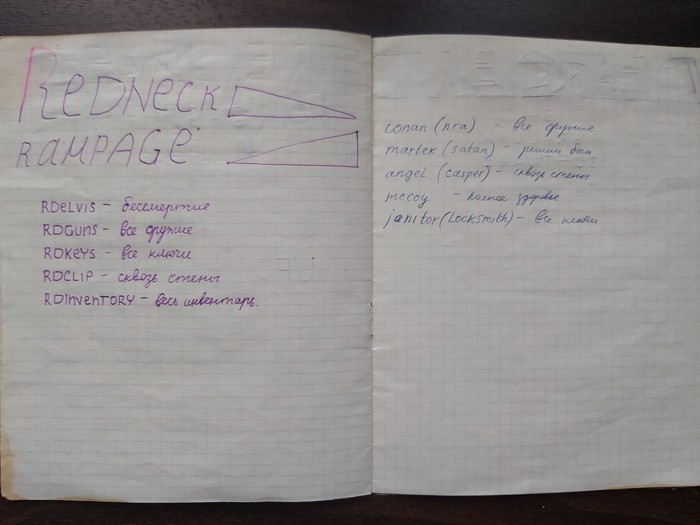 REDNECK
RAMPAGE
RDELVIS – бессмертие
RDGUNS – все оружие
RDKEYS – все ключи
RDCLIP – сквозь стены
RDINVENTORY – весь инвентарь.
conan (nra) – все оружие
martek (satan) – режим бога
angel (casper) – сквозь стены
mccoy – полное здоровье
janitor (locksmith) – все ключи